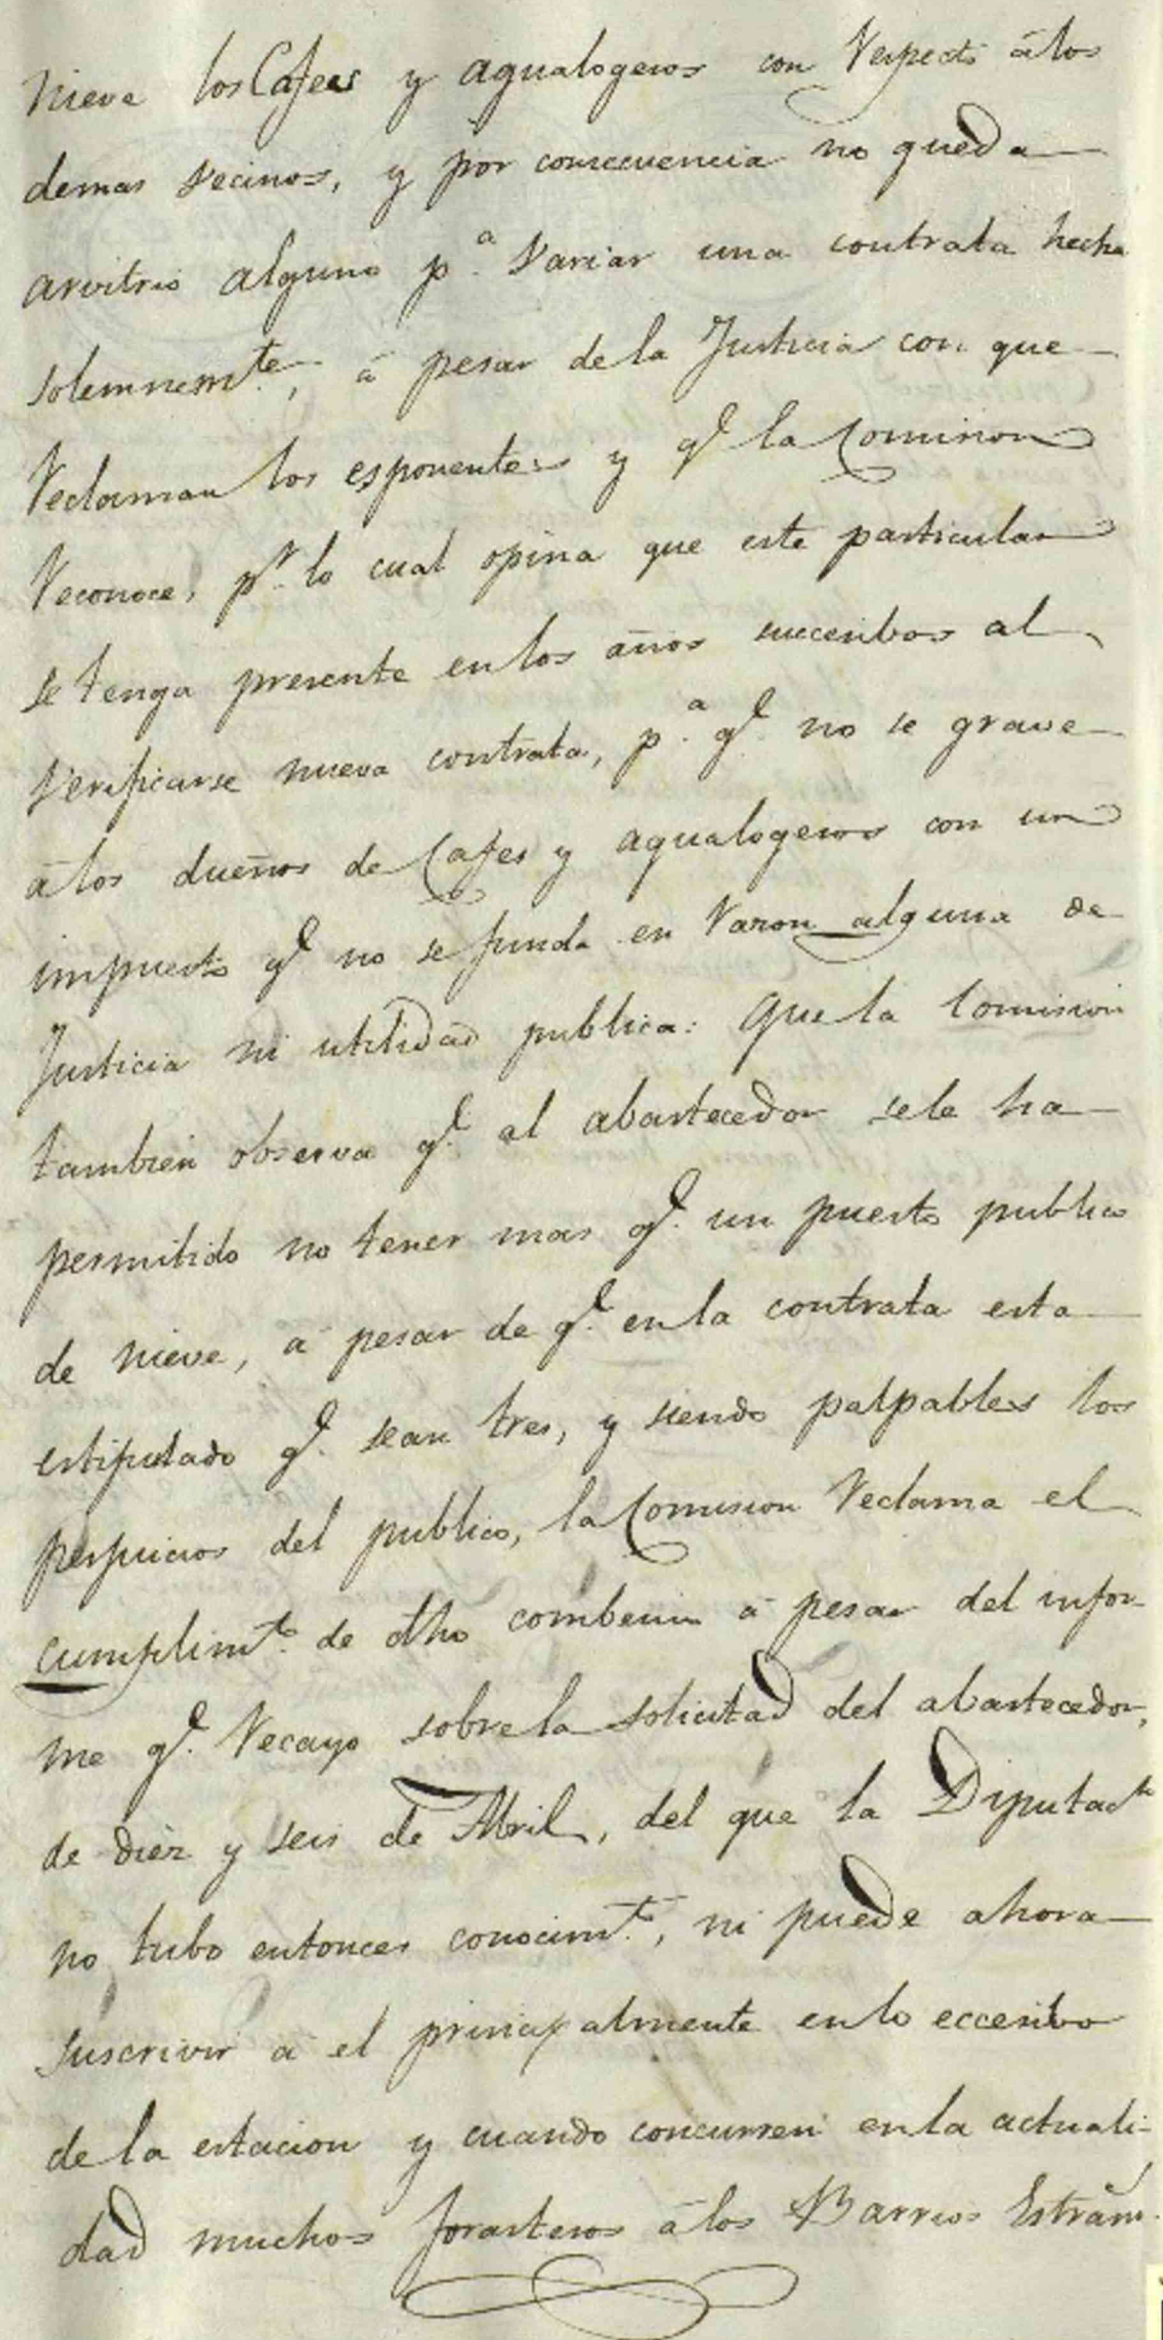 nieve los Cafees y agualogeros con respecto á los
demas vecinos, y por consecuencia no queda
arvitrio alguno p.ª variar una contrata hecha
solemnem.te, á pesar de la Justicia con que
reclaman los esponentes y q.e la Comision
reconoce, p.r lo cual opina que este particular
se tenga presente en los años succesibos al
verificarse nueva contrata, p.ª q.e no se grave
á los dueños de Cafes y agualogeros con un
impuesto q.e no se funda en razon alguna de
Justicia ni utilidad publica: Que la Comision
tambien observa q.e al abastecedor se le ha
permitido no tener mas q.e un puesto publico
de nieve, á pesar de q.e en la contrata esta
estipulado q.e sean tres, y siendo palpables los
perjuicios del publico, la Comision reclama el
cumplim.to de dho combenio á pesar del infor-
me q.e recayo sobre la solicitud del abastecedor,
de diez y seis de Abril, del que la Diputac.n
no tubo entonces conocim.to, ni puede ahora
suscrivir á el principalmente en lo eccesibo
de la estacion y cuando concurren en la actuali-
dad muchos forasteros á los Barrios Estram.